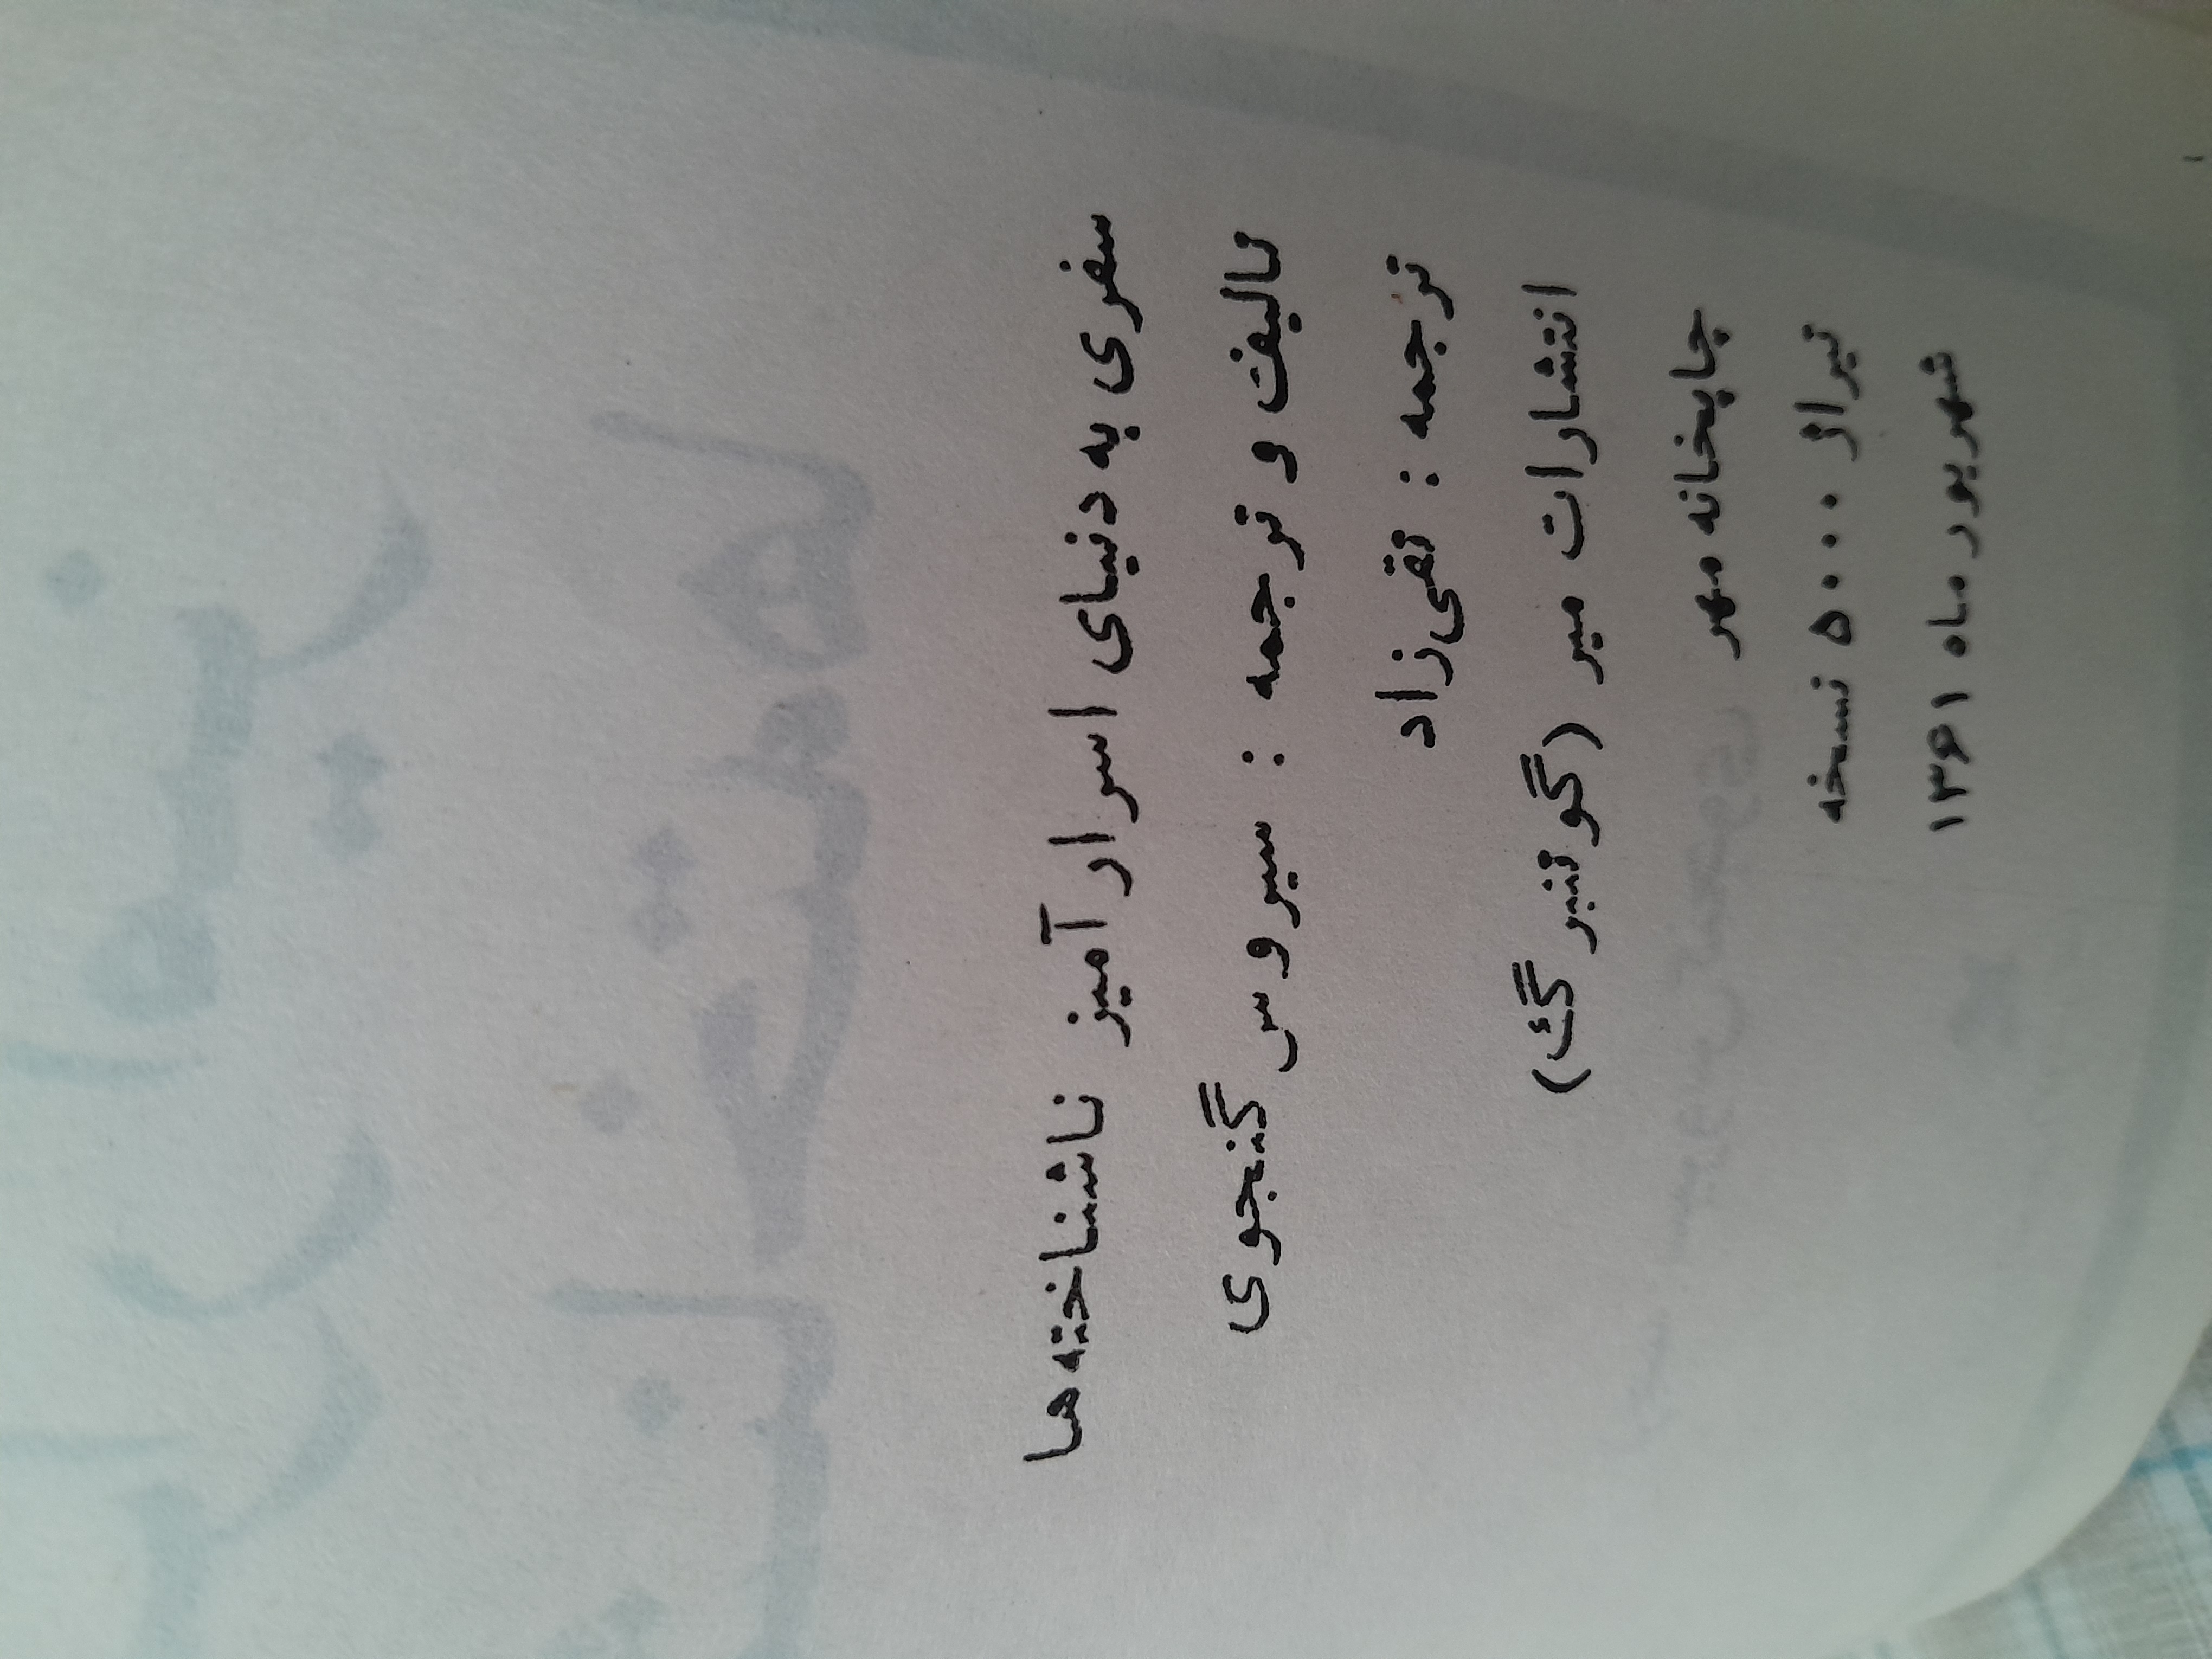 سفری به دنیای اسرار آمیز ناشناخته ها
تالیف و ترجمه : سیروس گنجوی
ترجمه : تقی‌زاد
انتشارات میر (گوتنبرگ)
چاپخانه مهر
تیراژ ۵۰۰۰ نسخه
شهریور ماه ۱۳۶۱